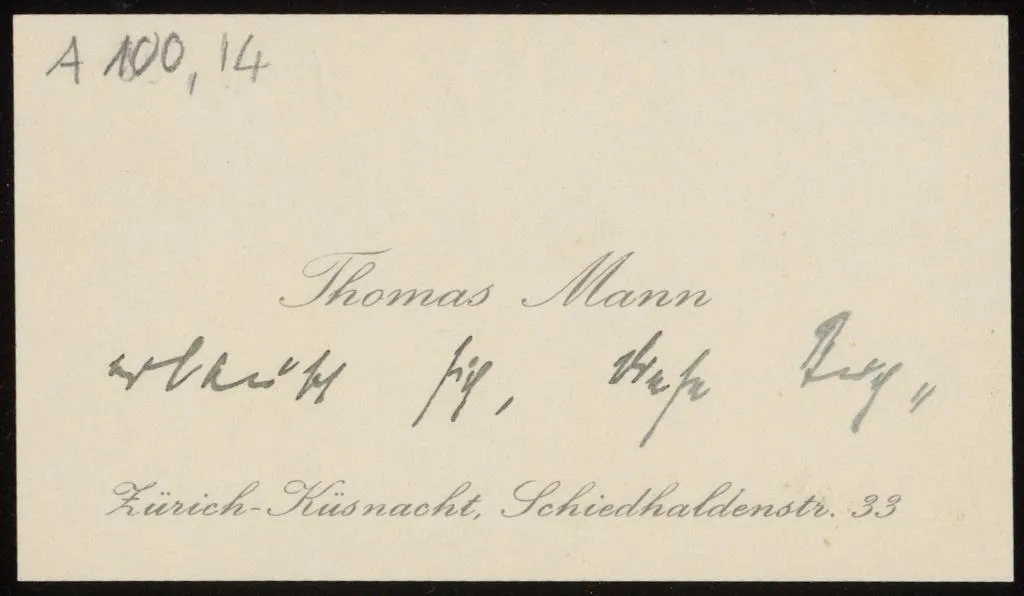 A 100, 14
Thomas Mann
erlaubt sich, diese Buch=
Zürich-Küsnacht, Schiedhaldenstr. 33